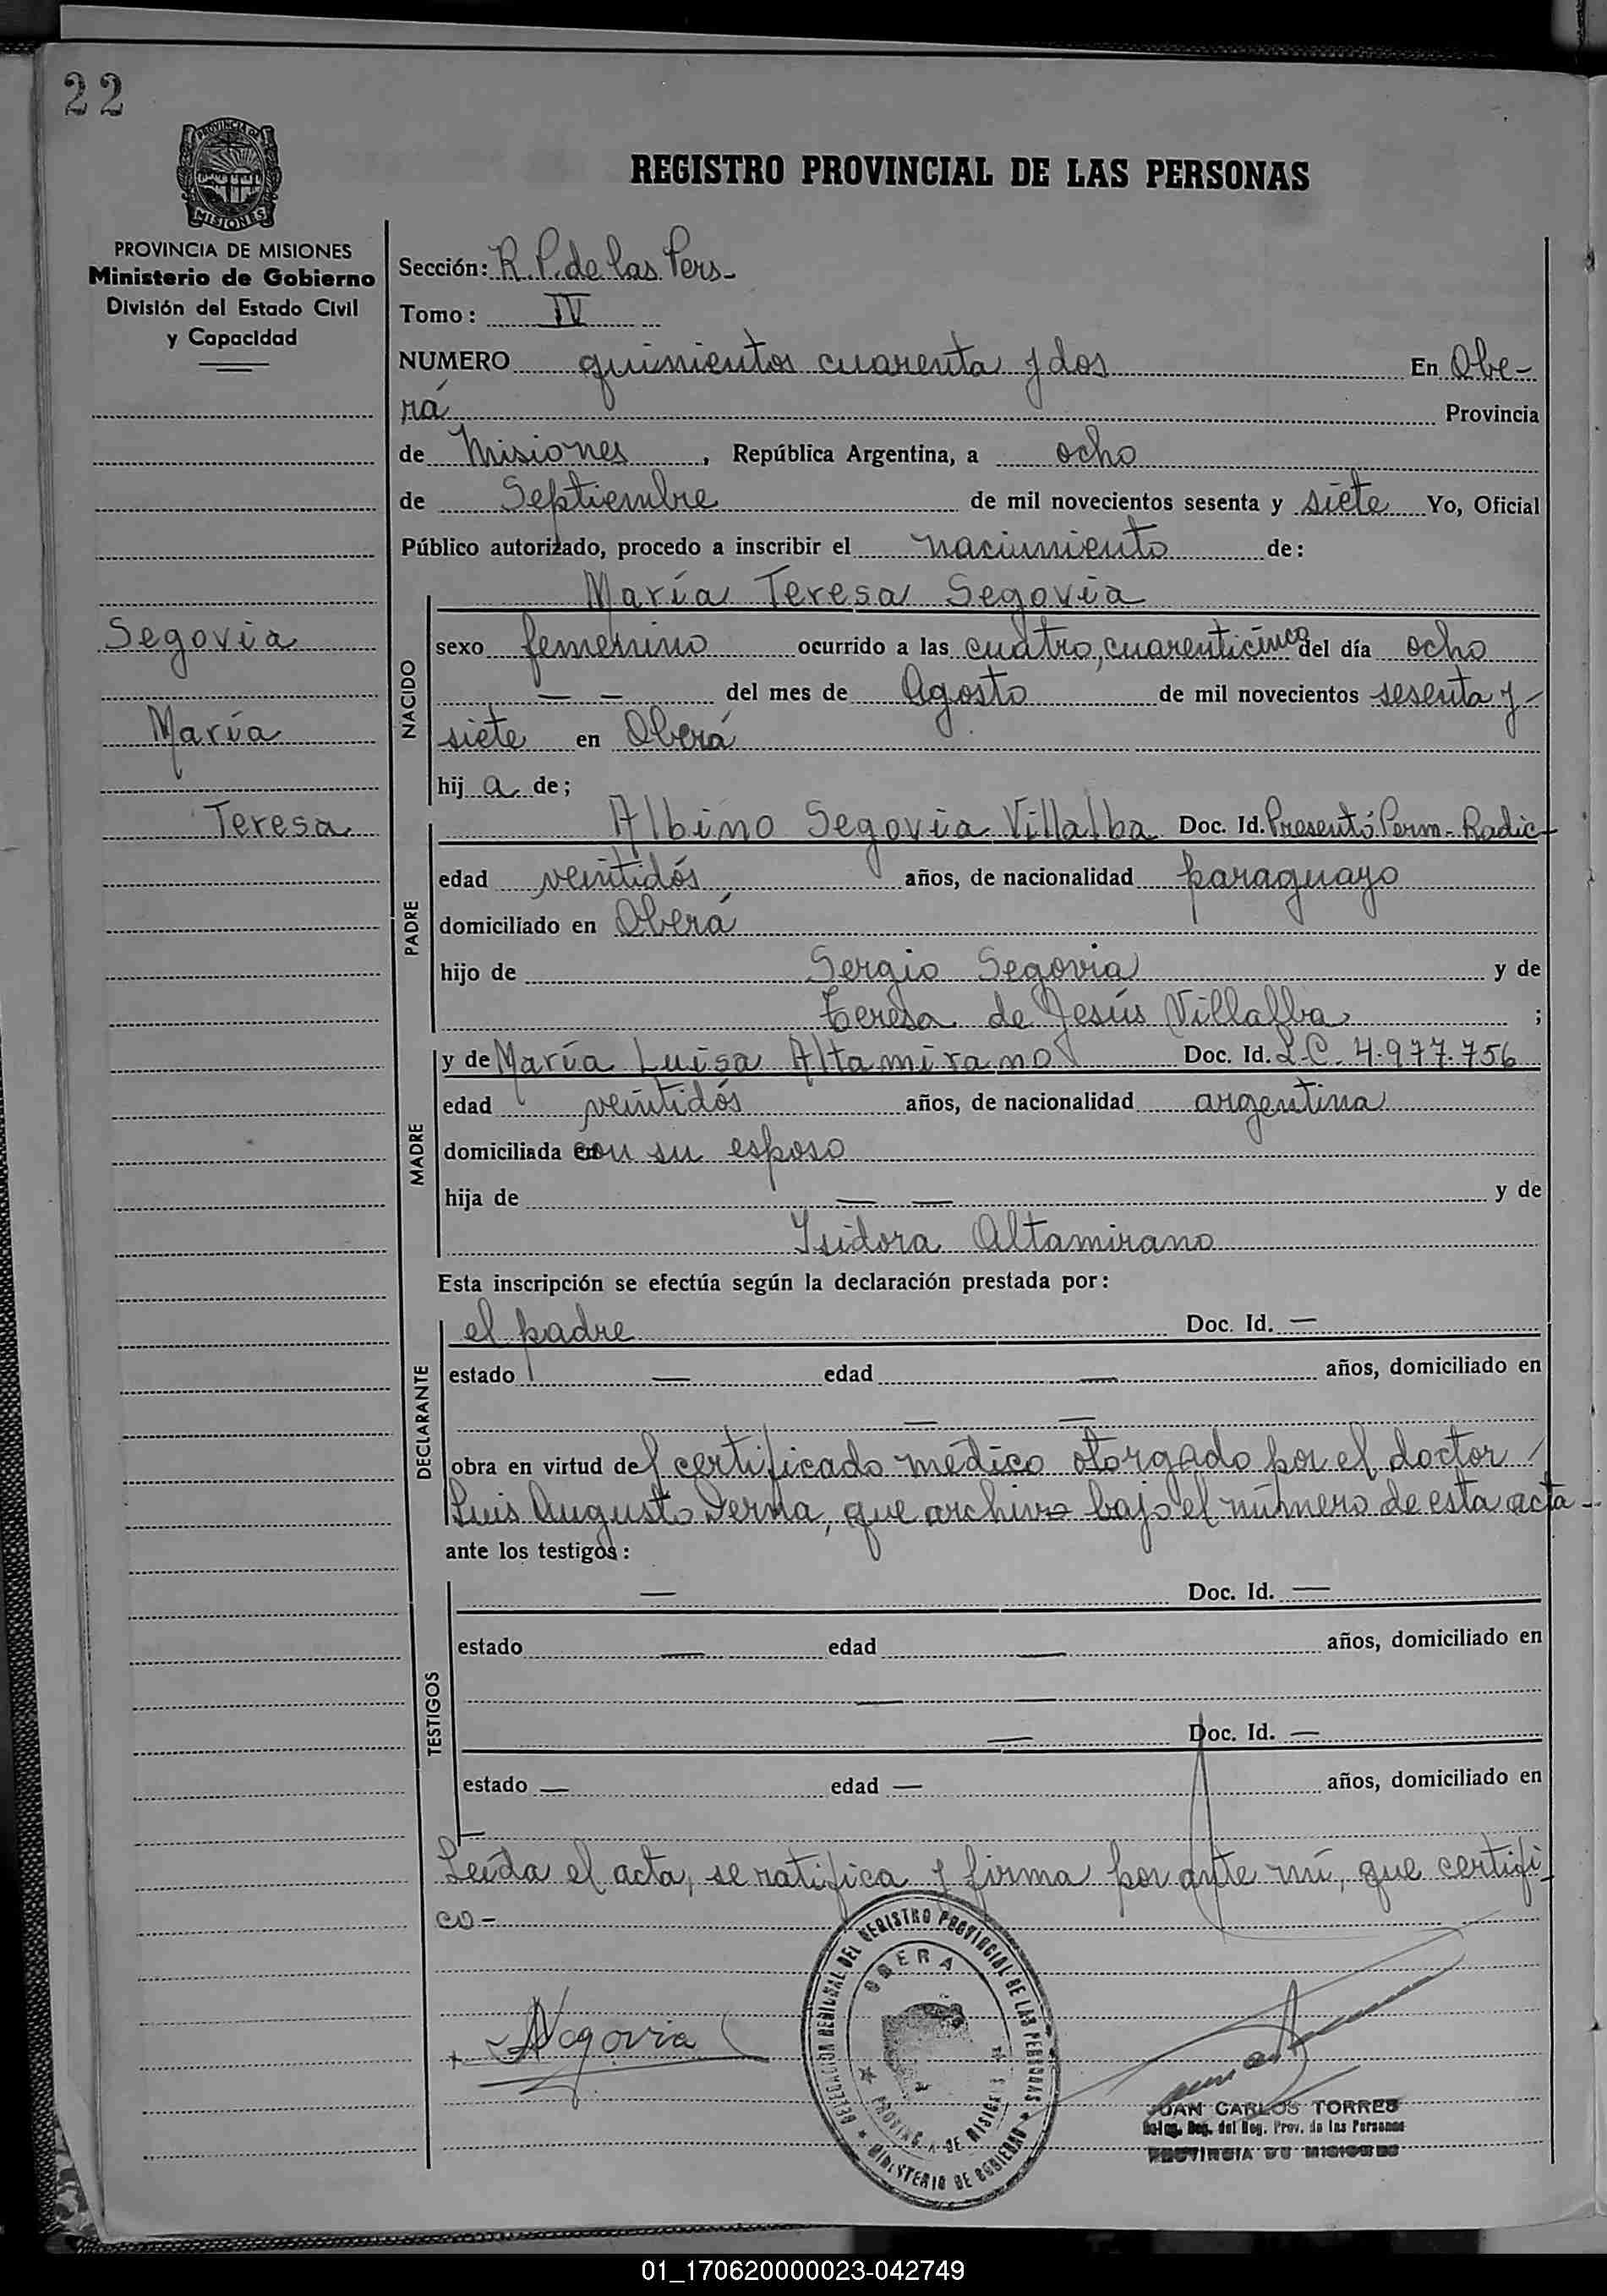 22
PROVINCIA DE
MISIONES
REGISTRO PROVINCIAL DE LAS PERSONAS
PROVINCIA DE MISIONES
Ministerio de Gobierno
División del Estado Civil
y Capacidad
Segovia
María
Teresa
Sección: R. P. de las Pers-
Tomo: IV
NUMERO quinientos cuarenta y dos En Obe-
rá Provincia
de Misiones, República Argentina, a ocho
de Septiembre de mil novecientos sesenta y siete Yo, Oficial
Público autorizado, procedo a inscribir el nacimiento de:
María Teresa Segovia
NACIDO
sexo femenino ocurrido a las cuatro, cuarenticinco del día ocho
— — del mes de Agosto de mil novecientos sesenta y
siete en Oberá
hij a de;
PADRE
Albino Segovia Villalba Doc. Id. Presentó Perm- Radic-
edad veintidós años, de nacionalidad paraguayo
domiciliado en Oberá
hijo de Sergio Segovia y de
Teresa de Jesús Villalba ;
MADRE
y de María Luisa Altamirano Doc. Id. L-C- 4.977.756
edad veintidós años, de nacionalidad argentina
domiciliada en con su esposo
hija de — — y de
Isidora Altamirano
Esta inscripción se efectúa según la declaración prestada por:
DECLARANTE
el padre Doc. Id. —
estado — edad — años, domiciliado en
— —
obra en virtud del certificado médico otorgado por el doctor /
Luis Augusto Derna, que archivo bajo el número de esta acta -
ante los testigos:
TESTIGOS
— Doc. Id. —
estado — edad — años, domiciliado en
— —
— Doc. Id. —
estado — edad — años, domiciliado en
—
Leída el acta, se ratifica y firma por ante mí, que certifi-
co-
Segovia
DELEGACION REGIONAL DEL REGISTRO PROVINCIAL DE LAS PERSONAS
OBERA
PROVINCIA DE MISIONES
MINISTERIO DE GOBIERNO
JUAN CARLOS TORRES
Deleg. Reg. del Reg. Prov. de las Personas
PROVINCIA DE MISIONES
01_170620000023-042749